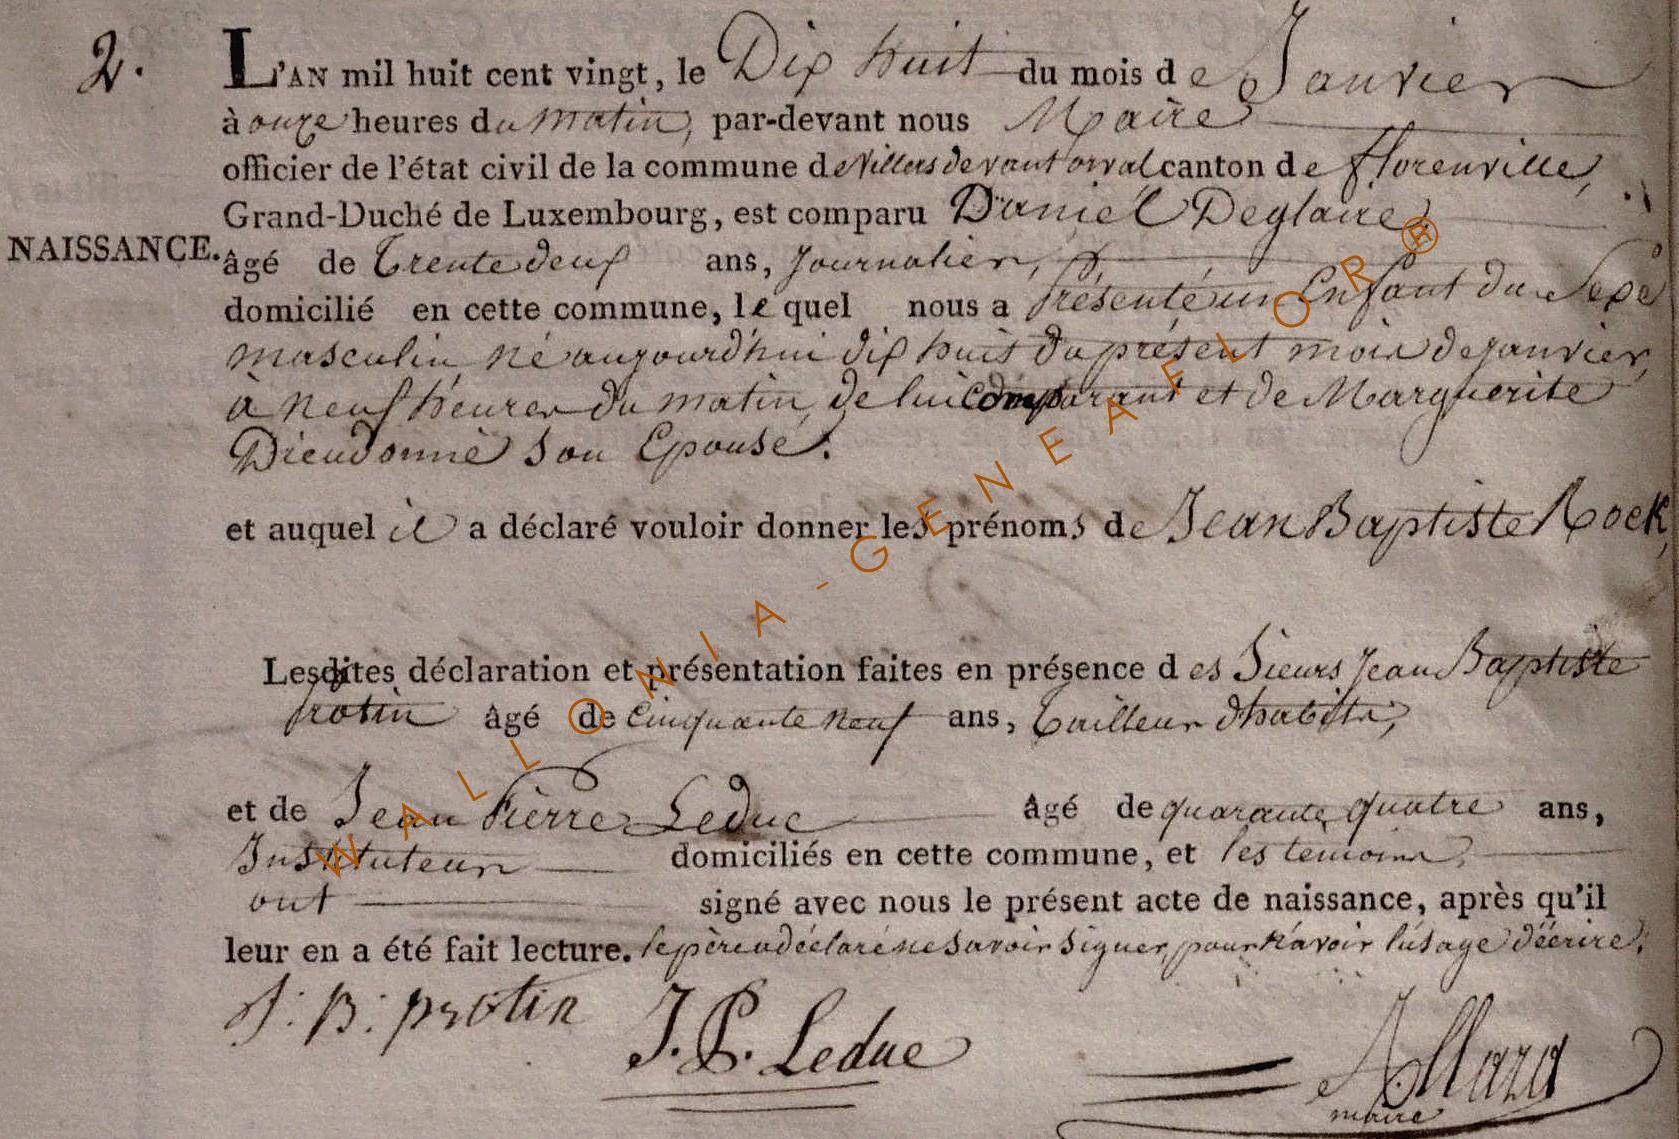 2.
L'AN mil huit cent vingt, le Dix huit du mois de Janvier
à onze heures du matin, par-devant nous Maire
officier de l'état civil de la commune de Villers devant orval canton de florenville,
Grand-Duché de Luxembourg, est comparu Daniel Deglaire,
NAISSANCE.
âgé de Trente deux ans, Journalier,
domicilié en cette commune, lequel nous a présenté un Enfant du Sexe
masculin né aujourd'hui dix huit du présent mois de janvier,
à neuf heures du matin, de lui comparant et de Marguerite
Dieudonné son Epouse.
et auquel il a déclaré vouloir donner les prénoms de Jean Baptiste Rock,
Lesdites déclaration et présentation faites en présence des Sieurs Jean Baptiste
protin âgé de Cinquante neuf ans, Tailleur d'habits,
et de Jean Pierre Leduc âgé de quarante quatre ans,
Instituteur domiciliés en cette commune, et les temoins,
ont signé avec nous le présent acte de naissance, après qu'il
leur en a été fait lecture. le père a déclaré ne savoir signer, pour n'avoir l'usage d'écrire.
J. B. protin J. P. Leduc Allard
maire
WALLONIA-GENEAFLOR®